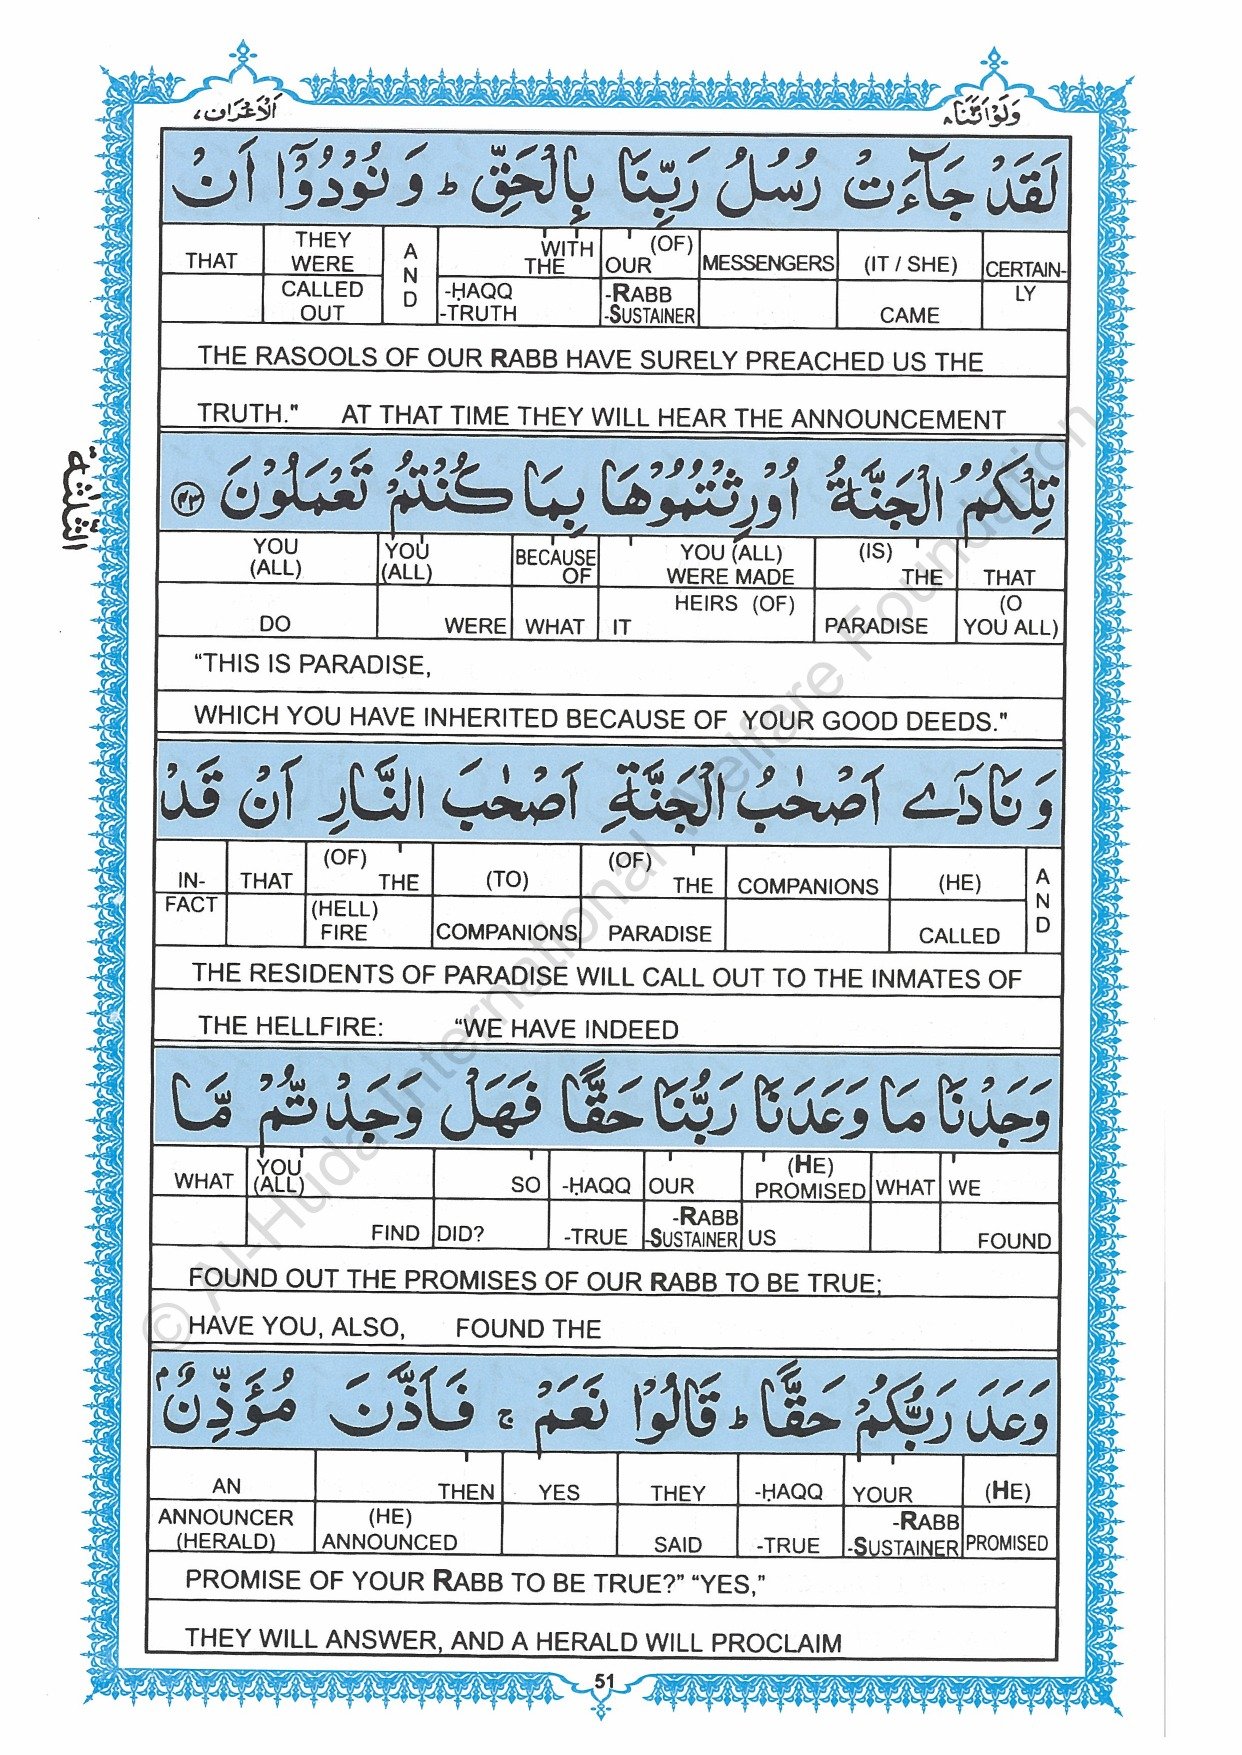 اَلْاَعْرَاف٧
وَلَوْاَنَّنَا٨
لَقَدْ جَآءَتْ رُسُلُ رَبِّنَا بِالْحَقِّ ط وَنُوْدُوْٓا اَنْ
THAT THEY WERE AND WITH THE (OF) OUR MESSENGERS (IT / SHE) CERTAIN-
CALLED OUT -ḤAQQ -TRUTH -RABB -SUSTAINER CAME LY
THE RASOOLS OF OUR RABB HAVE SURELY PREACHED US THE
TRUTH." AT THAT TIME THEY WILL HEAR THE ANNOUNCEMENT
الثلثة
تِلْكُمُ الْجَنَّةُ اُوْرِثْتُمُوْهَا بِمَا كُنْتُمْ تَعْمَلُوْنَ ٤٣
YOU (ALL) YOU (ALL) BECAUSE OF YOU (ALL) WERE MADE (IS) THE THAT
DO WERE WHAT IT HEIRS (OF) PARADISE (O YOU ALL)
“THIS IS PARADISE,
WHICH YOU HAVE INHERITED BECAUSE OF YOUR GOOD DEEDS."
وَنَادٰٓى اَصْحٰبُ الْجَنَّةِ اَصْحٰبَ النَّارِ اَنْ قَدْ
IN- THAT (OF) THE (TO) (OF) THE COMPANIONS (HE) AND
FACT (HELL) FIRE COMPANIONS PARADISE CALLED
THE RESIDENTS OF PARADISE WILL CALL OUT TO THE INMATES OF
THE HELLFIRE: “WE HAVE INDEED
وَجَدْنَا مَا وَعَدَنَا رَبُّنَا حَقًّا فَهَلْ وَجَدْتُّمْ مَّا
WHAT YOU (ALL) SO -ḤAQQ OUR (HE) PROMISED WHAT WE
FIND DID? -TRUE -RABB -SUSTAINER US FOUND
FOUND OUT THE PROMISES OF OUR RABB TO BE TRUE;
HAVE YOU, ALSO, FOUND THE
وَعَدَ رَبُّكُمْ حَقًّا ط قَالُوْا نَعَمْ ج فَاَذَّنَ مُؤَذِّنٌۢ
AN THEN YES THEY -ḤAQQ YOUR (HE)
ANNOUNCER (HERALD) (HE) ANNOUNCED SAID -TRUE -RABB -SUSTAINER PROMISED
PROMISE OF YOUR RABB TO BE TRUE?” “YES,”
THEY WILL ANSWER, AND A HERALD WILL PROCLAIM
51
© Al-Huda International Welfare Foundation